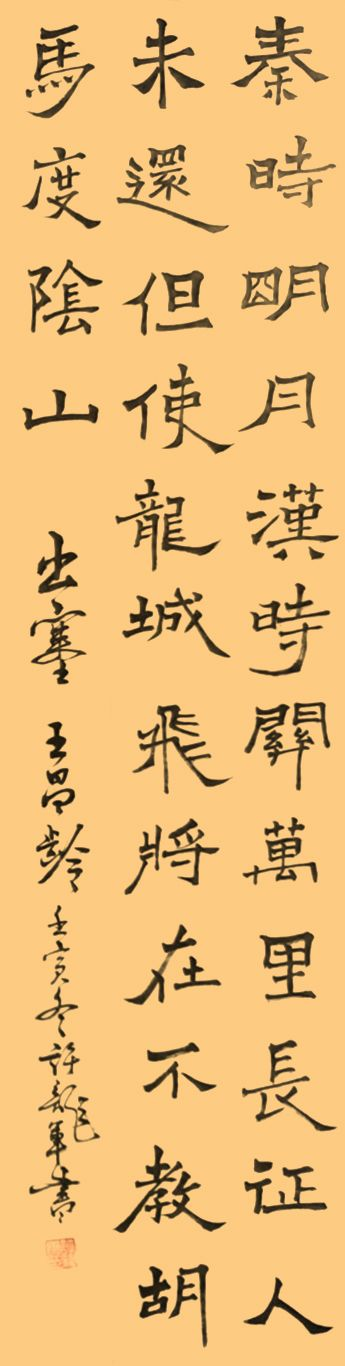 秦時明月漢時關萬里長征人
未還但使龍城飛將在不教胡
馬度陰山 出塞 王昌齡 壬寅冬許龍軍書